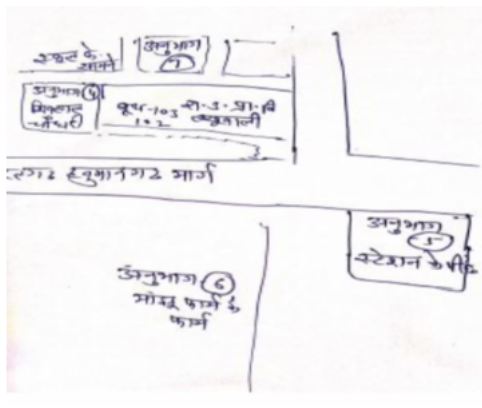 स्कूल के
सामने
अनुभाग
7
अनुभाग
चौधरी
बूथ-103
102
रा. उ. प्रा. वि
हनुमानगढ मार्ग
अनुभाग
5
स्टेशन के पीछे
अनुभाग 6
फार्म के
फार्म